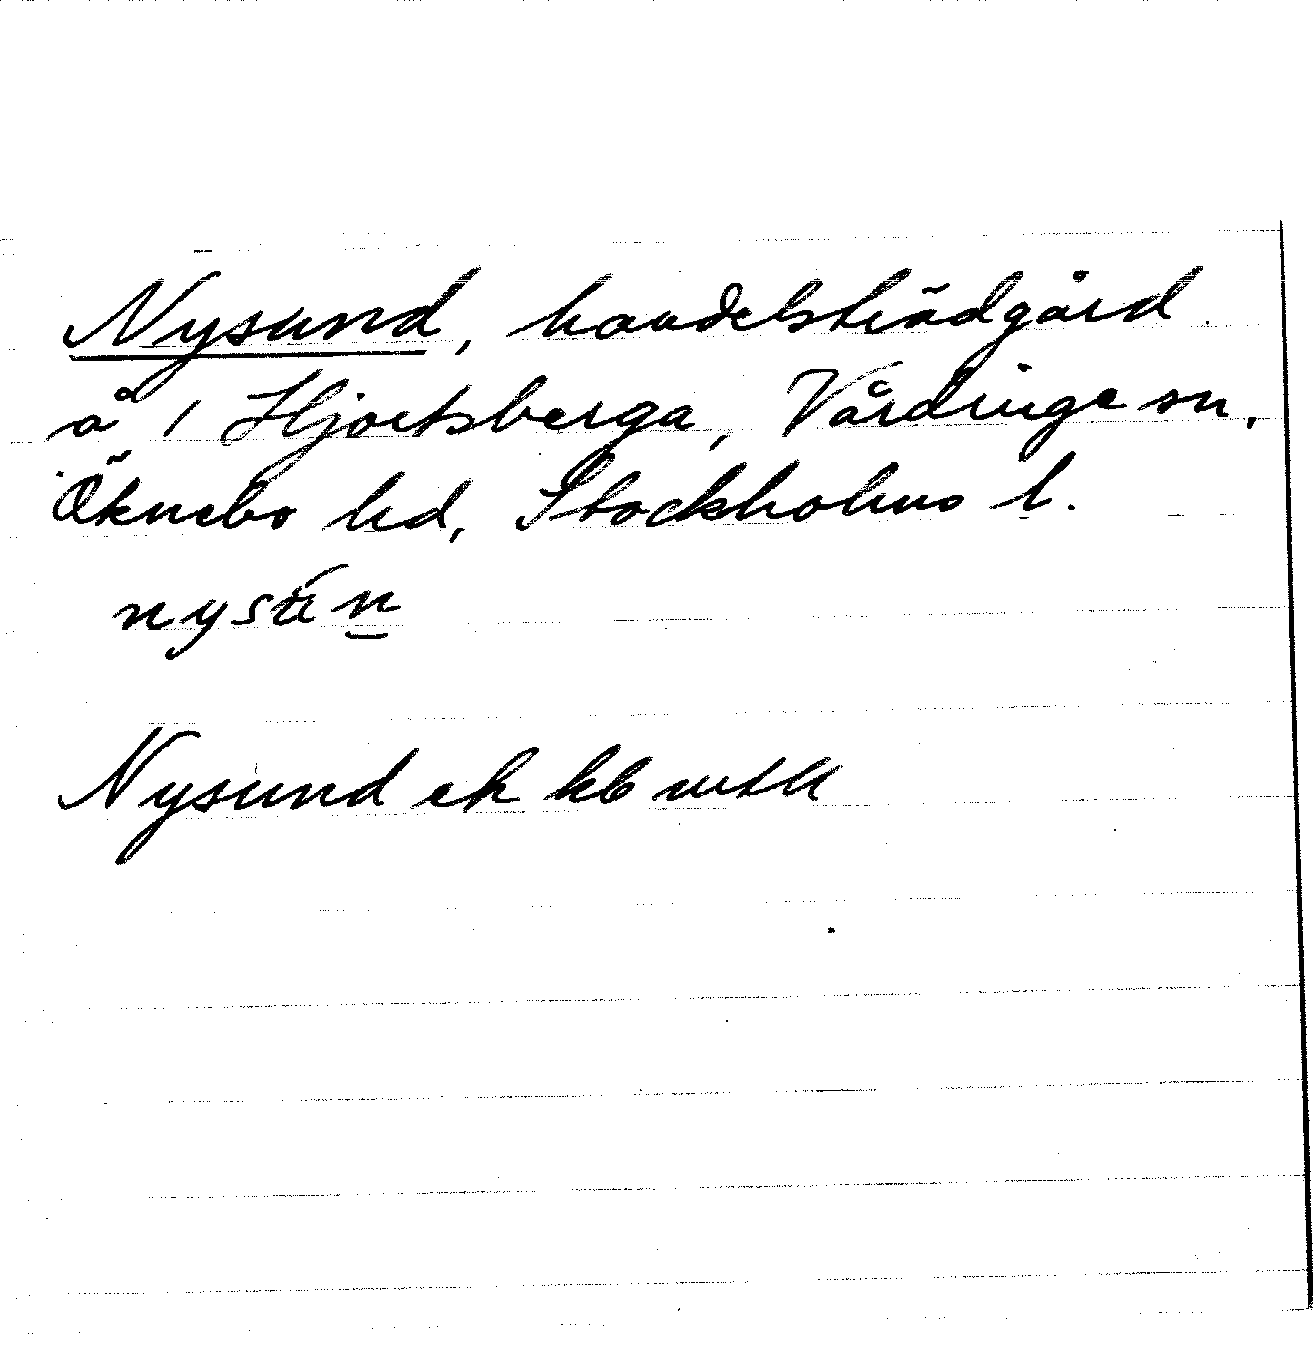 Nysund, handelsträdgård
å 1 Hjortsberga, Vårdinge sn,
Öknebo hd, Stockholms l.
Nysund ek kb